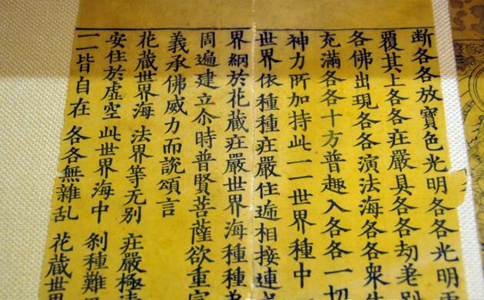 断各各放寶色光明各各光明
覆其上各各莊嚴具各各劫差別
各佛出現各各演法海各各衆
充滿各各十方普趣入各各一切
神力所加持此一一世界種中
世界依種種莊嚴住遞相接連
界網於花藏莊嚴世界海種種
周遍建立尒時普賢菩薩欲重
義承佛威力而說頌言
花藏世界海 法界等无别 莊嚴極
安住於虛空 此世界海中 刹種難
一一皆自在 各各無雜乱 花藏世界